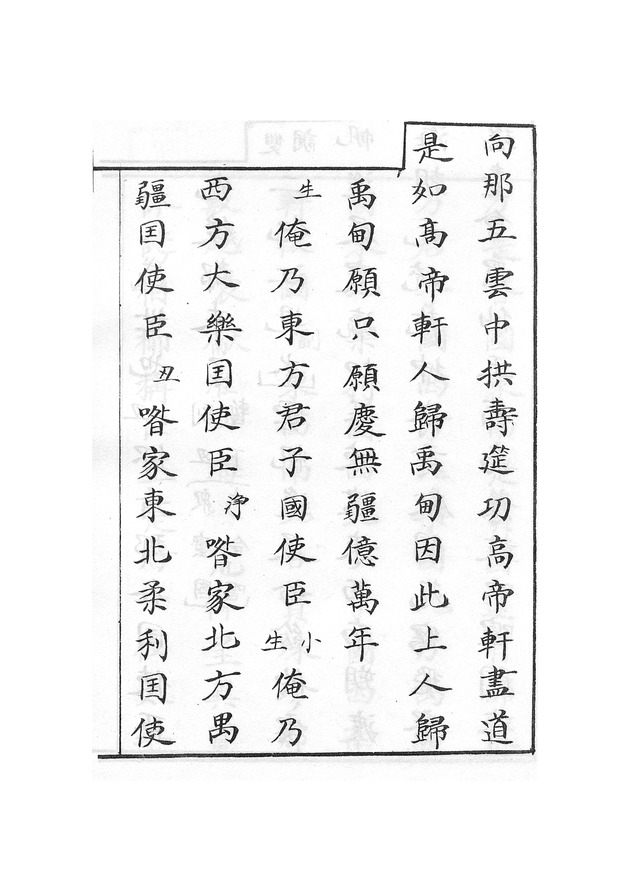 向那五雲中拱壽筵功高帝軒盡道
是如高帝軒人歸禹甸因此上人歸
禹甸願只願慶無疆億萬年
生俺乃東方君子國使臣小生俺乃
西方大樂囯使臣淨喒家北方禺
疆囯使臣丑喒家東北柔利囯使